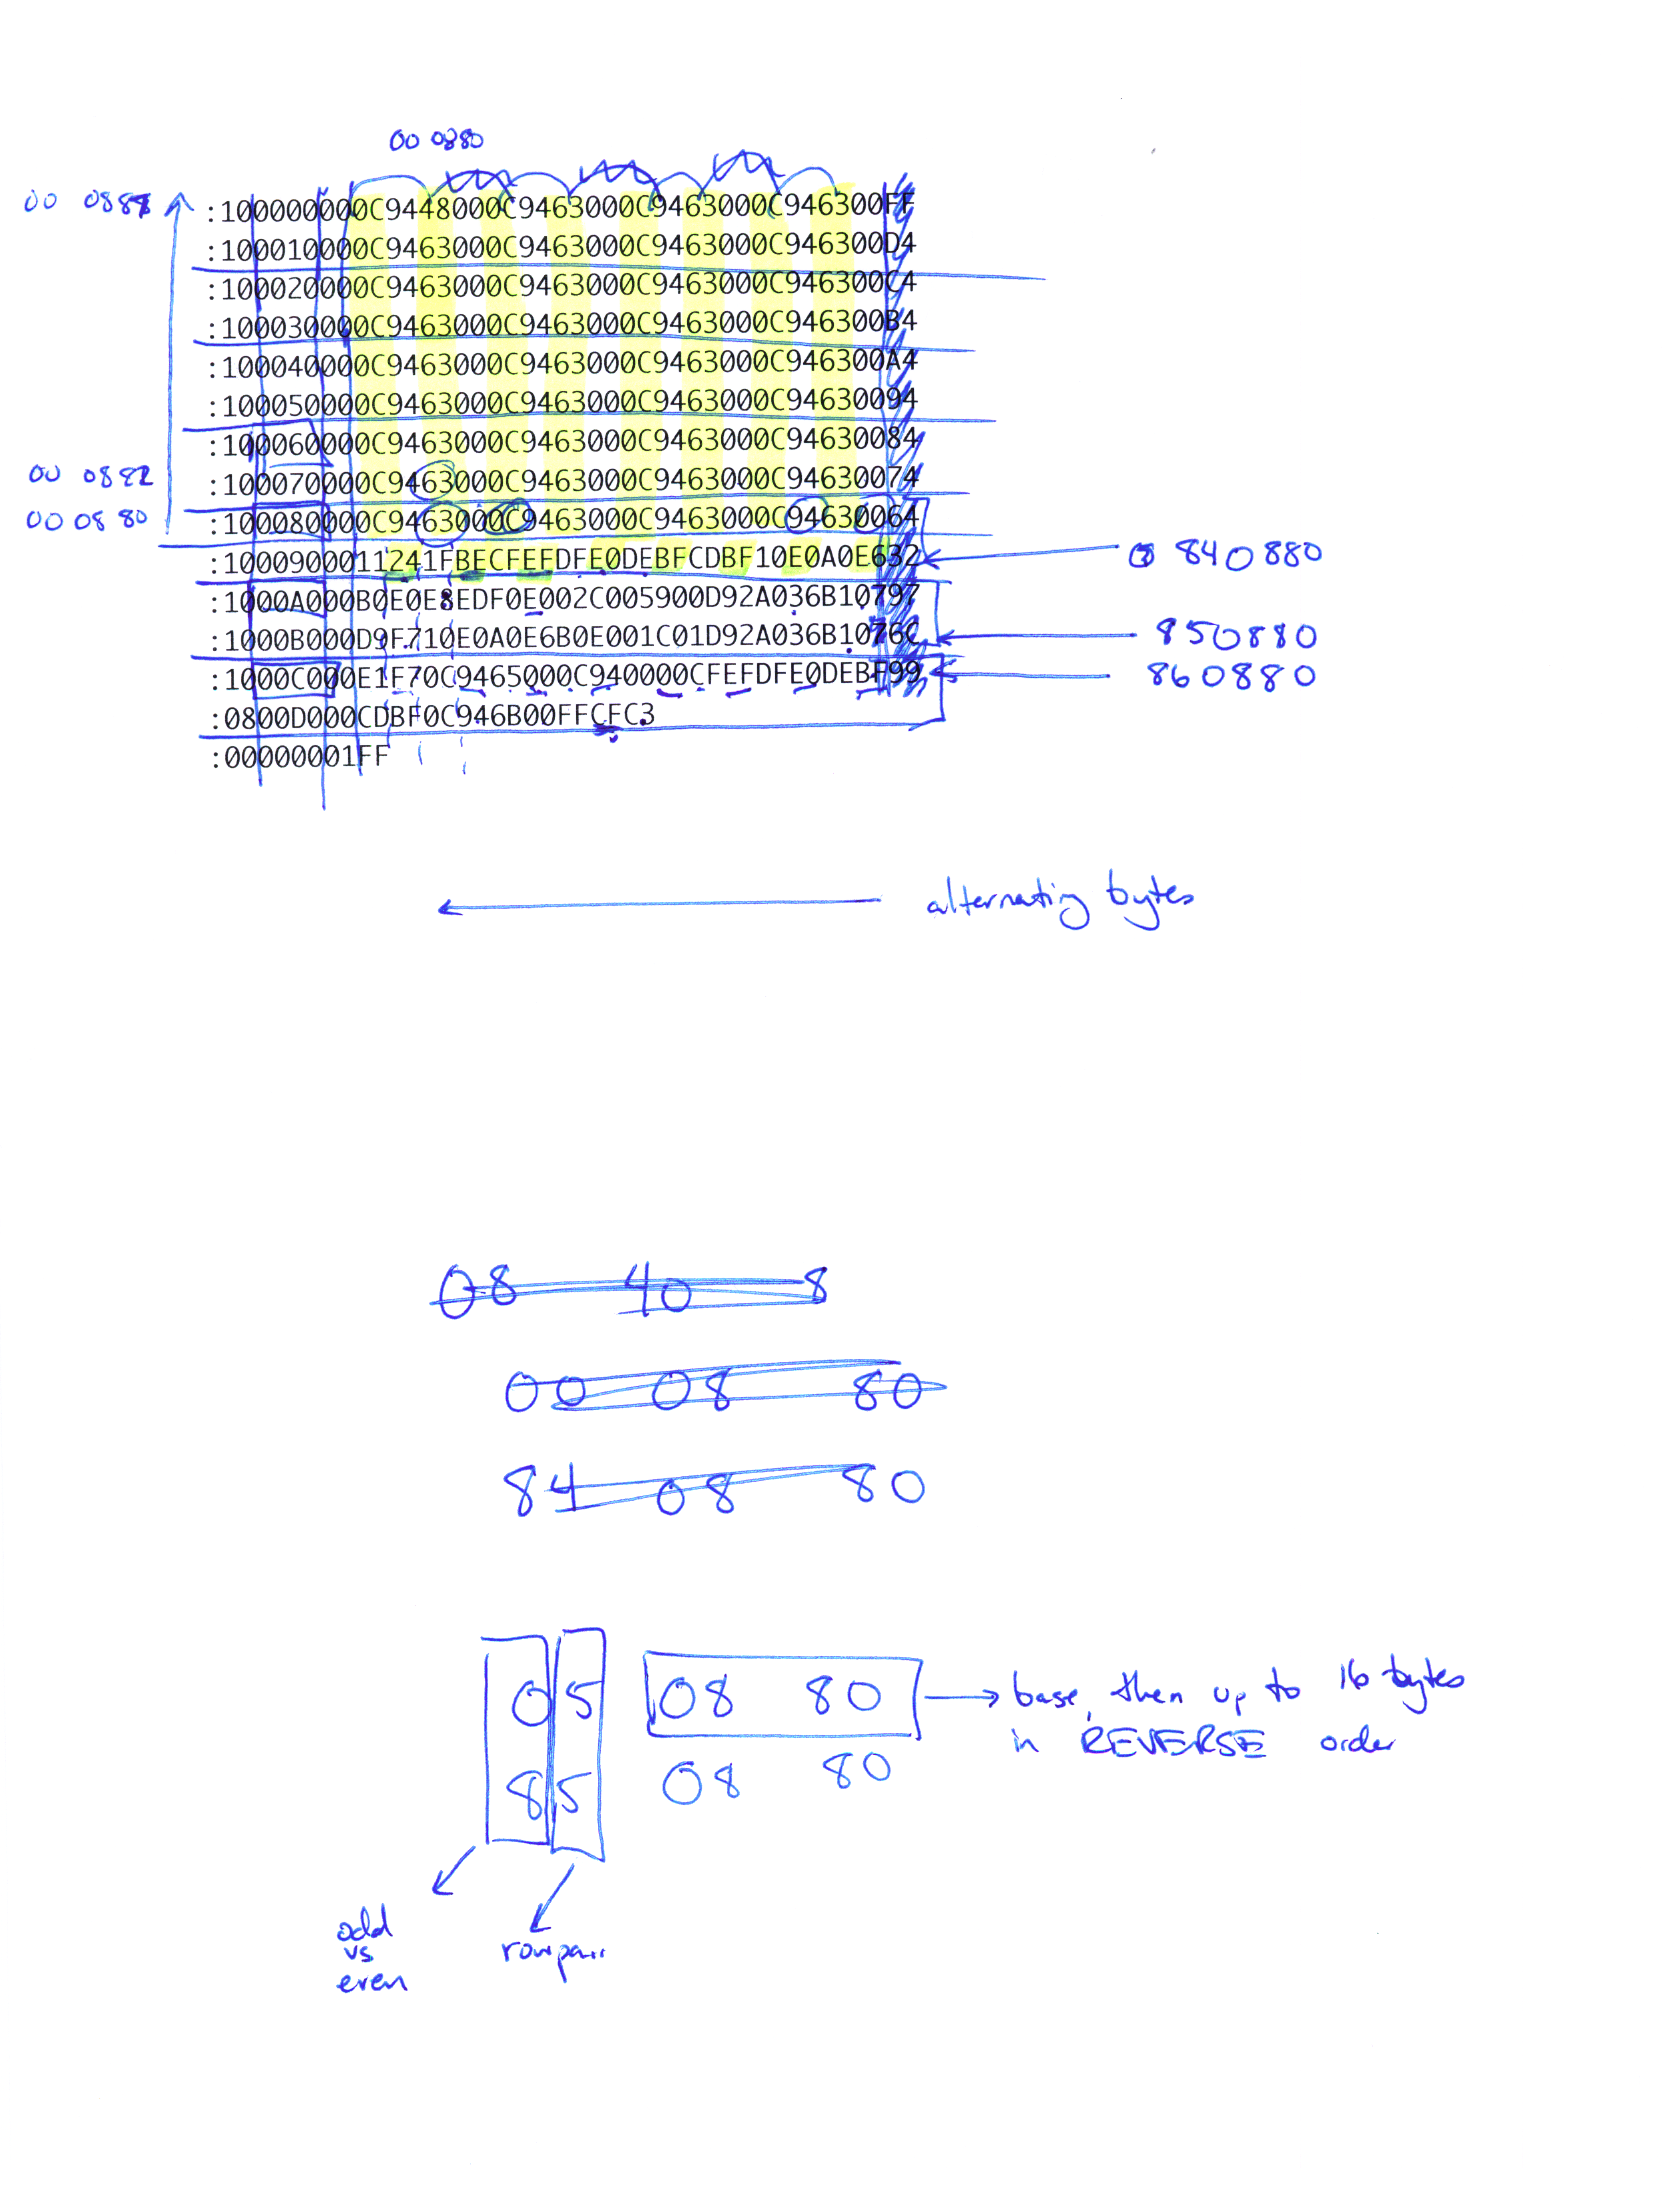 00 0880
00 0888
:100000000C9448000C9463000C9463000C946300FF
:100010000C9463000C9463000C9463000C946300D4
:100020000C9463000C9463000C9463000C946300C4
:100030000C9463000C9463000C9463000C946300B4
:100040000C9463000C9463000C9463000C946300A4
:100050000C9463000C9463000C9463000C94630094
:100060000C9463000C9463000C9463000C94630084
00 0882
:100070000C9463000C9463000C9463000C94630074
00 0880
:100080000C9463000C9463000C9463000C94630064
:1000900011241FBECFEFDFE0DEBFCDBF10E0A0E632
840880
:1000A000B0E0E8EDF0E002C005900D92A036B10797
:1000B000D9F710E0A0E6B0E001C01D92A036B1076C
850880
:1000C000E1F70C9465000C940000CFEFDFE0DEBF99
860880
:0800D000CDBF0C946B00FFCFC3
:00000001FF
alternating bytes
08 40 8
00 08 80
84 08 80
05 08 80
base, then up to 16 bytes
in REVERSE order
85 08 80
odd
vs
even
row pair